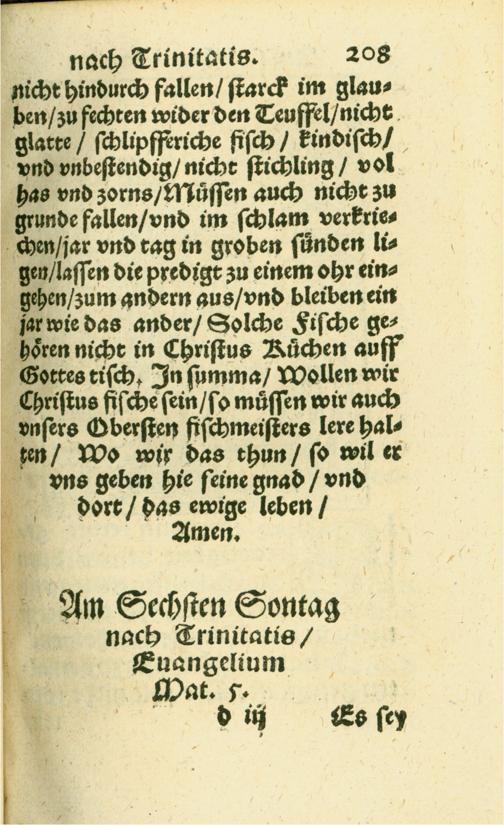 nach Trinitatis. 208
nicht hindurch fallen/ starck im glau⸗
ben/zu fechten wider den Teuffel/nicht
glatte / schlipfferiche fisch / kindisch/
vnd vnbestendig/ nicht stichling / vol
has vnd zorns/Müssen auch nicht zu
grunde fallen/vnd im schlam verkrie⸗
chen/jar vnd tag in groben sünden li⸗
gen/lassen die predigt zu einem ohr ein⸗
gehen/zum andern aus/vnd bleiben ein
jar wie das ander/ Solche Fische ge⸗
hören nicht in Christus Küchen auff
Gottes tisch. In summa/ Wollen wir
Christus fische sein/so müssen wir auch
vnsers Obersten fischmeisters lere hal⸗
ten/ Wo wir das thun/ so wil er
vns geben hie seine gnad / vnd
dort / das ewige leben /
Amen.
Am Sechsten Sontag
nach Trinitatis /
Euangelium
Mat. 5.
d iij Es sey